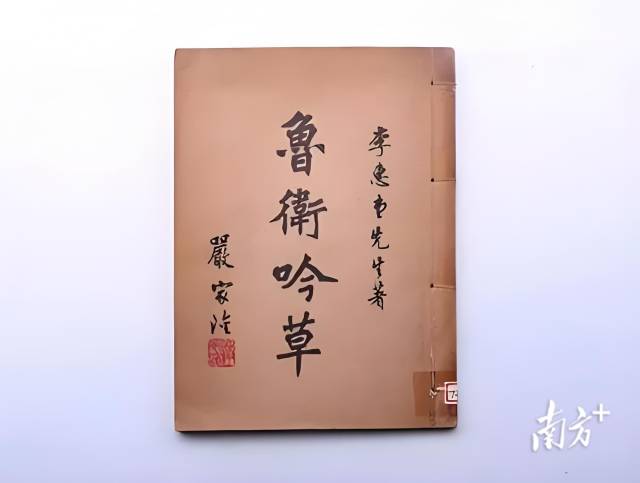 李惠堂先生著
魯衛吟草
嚴家淦
南方+